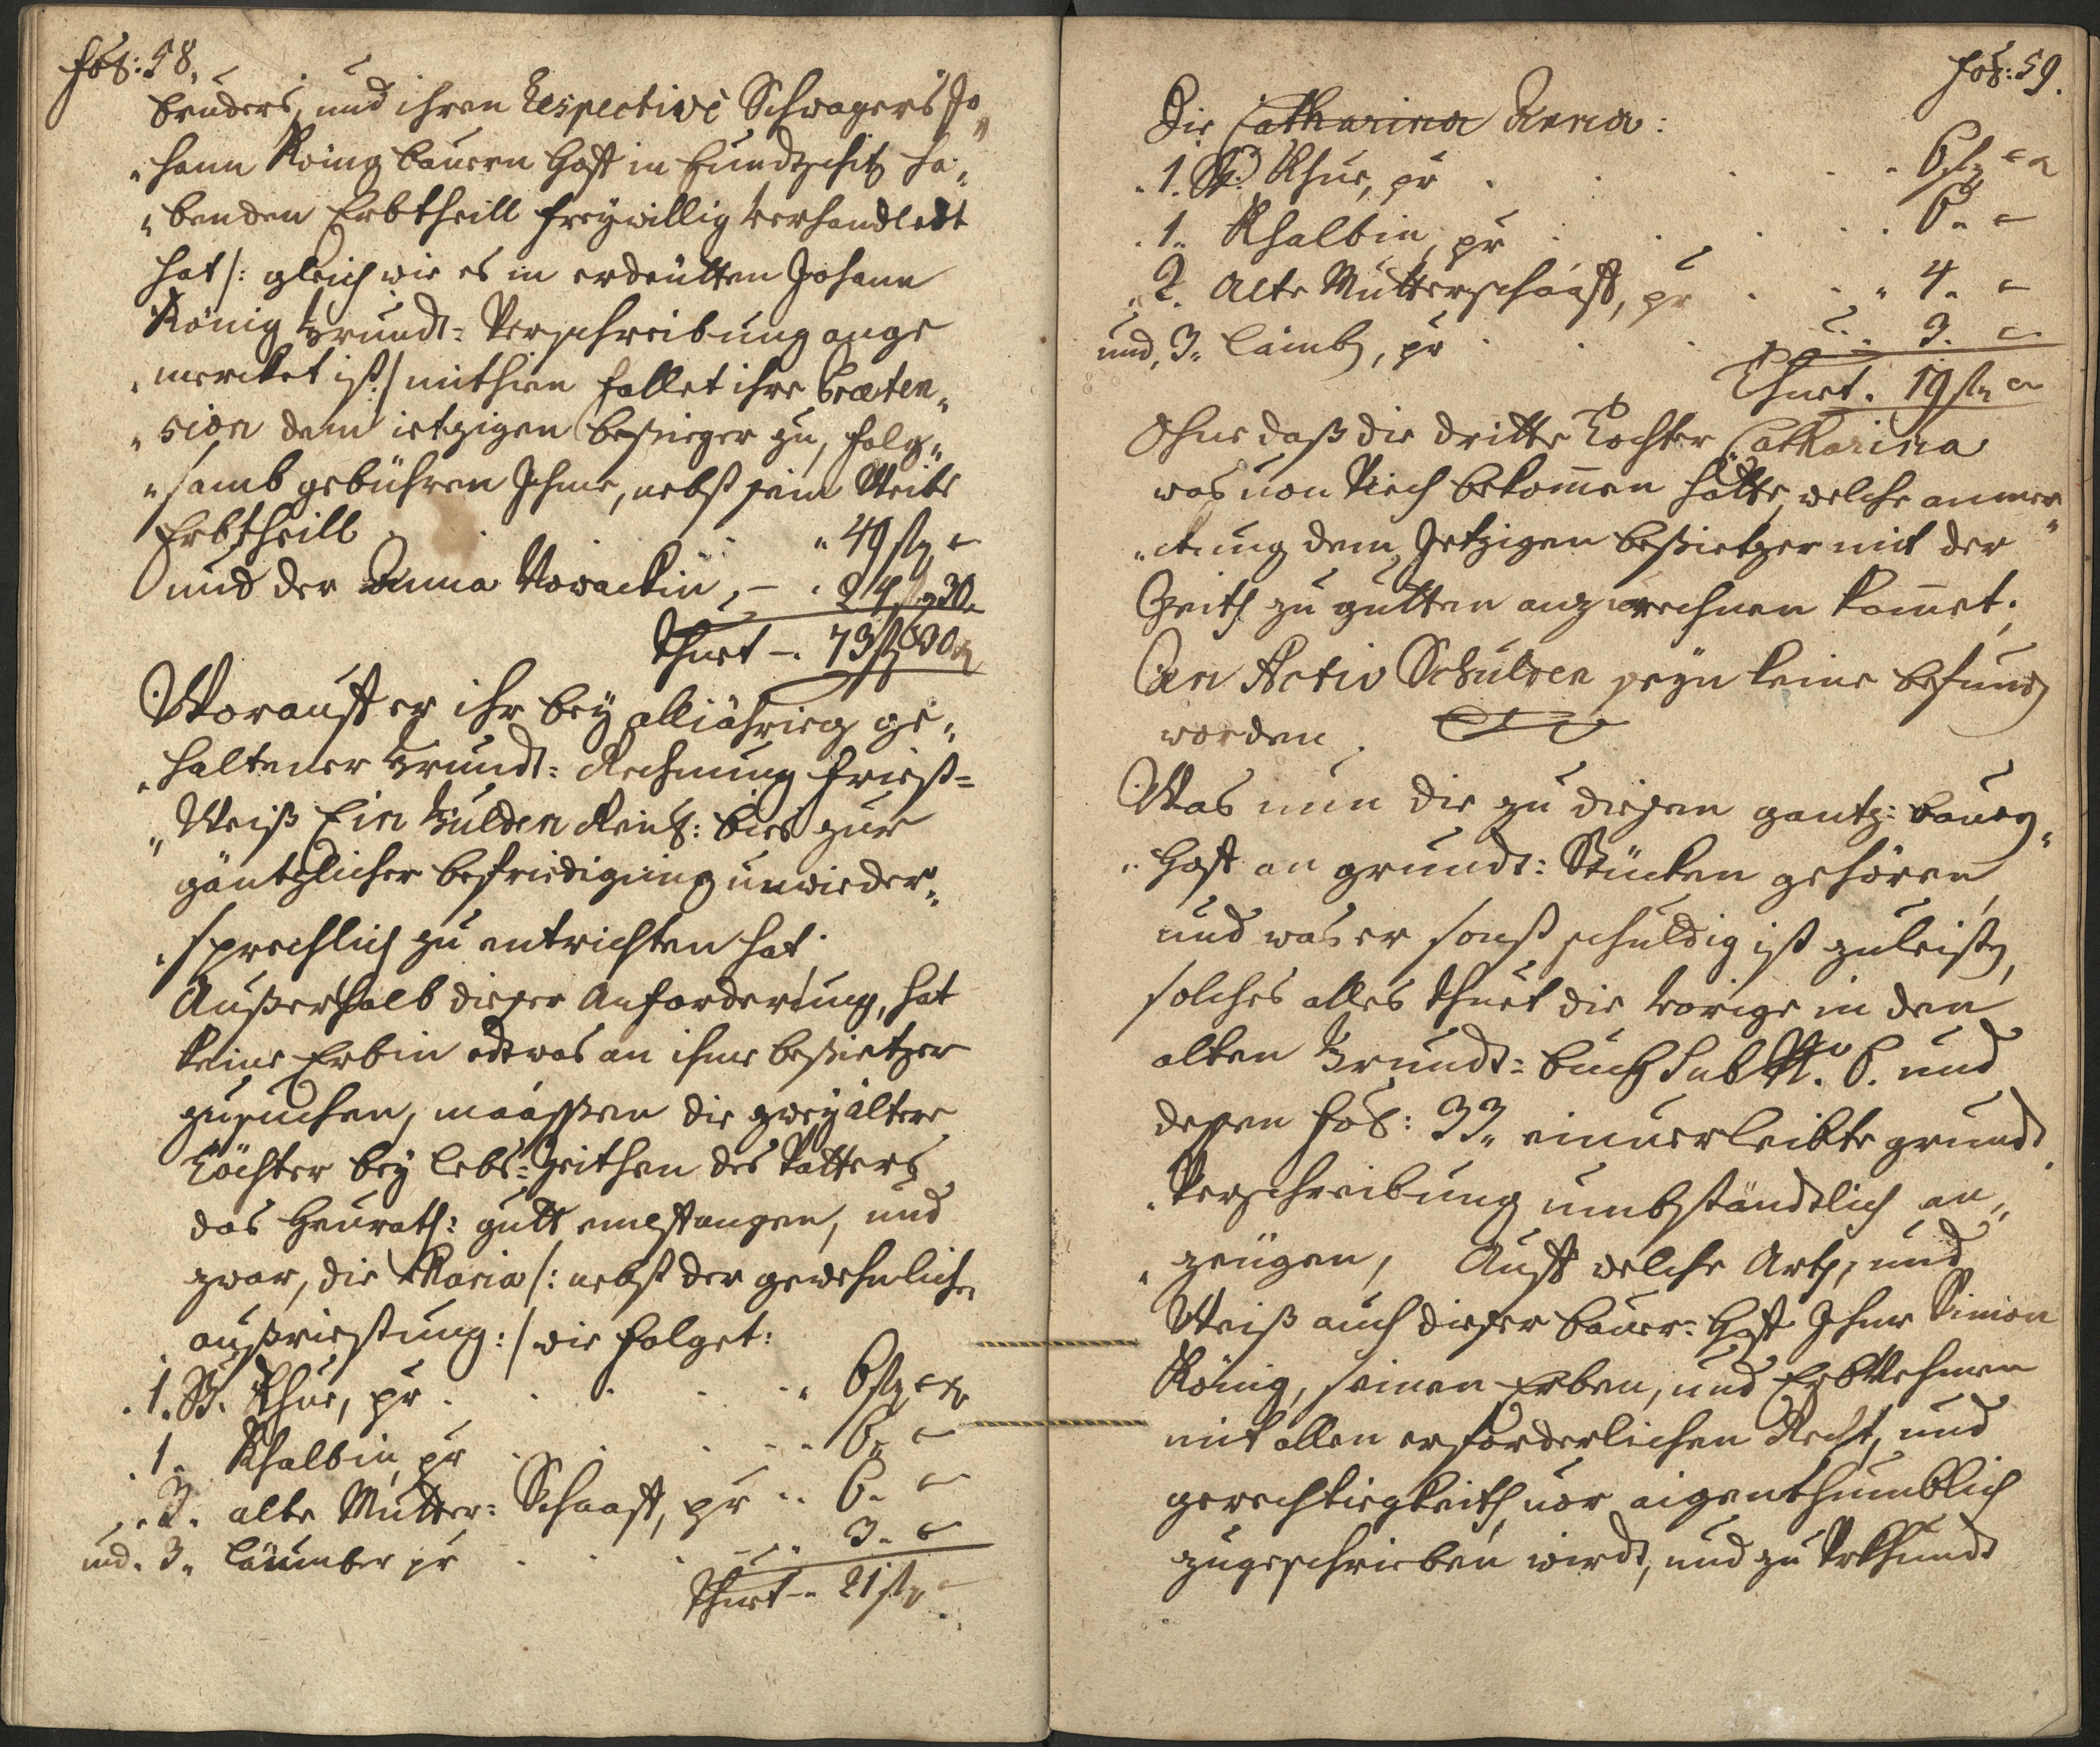 fol: 58.
bruders, und ihren Respective Schwagers Jo„
„hann König bauern Hoff in  ha„
„benden Erbtheill freywillig verhandledt
hat /: gleich wie es in erdeütten Johann
König Grundt=Verschreibung ange
„mercket ist :/ mithien fallet ihre Præten„
„sion dem ietzigen besitzer zu, folg„
„samb gebühren Ihme, nebst sein Weibs
Erbtheill . . . „ 49 fl „
und der Anna Nowackin, – . 24 fl 30.
Thuet –. 73 fl 30 x
Worauff er ihr bey alljährieg ge„
„haltener Grundt=Rechnung friest=
„Weiß Ein Gulden Reinl: bies zur
gäntzlicher befriedigung unwieder„
„sprechlich zu entrichten hat.
Außerhalb dieser Anforderung, hat
keine Erbin edtwas an ihme besietzer
zusuchen, maassen die zwey ältere
Töchter bey lebs=Zeithen des Vatters
das Heurath: gutt empfangen, und
zwar, die Maria /: nebst der gewehnliche
außriestung :/ wie folget:
. 1. St. Khue, pr . . . . „ 6 fl „ x
. 1. Khalbin pr . . . . 6 „ „
„ 2. alte Mutter=Schaaff, pr .. 6. „
und. 3„ Läumber pr . . . .. 3. „
Thuet –. 21 fl „
fol: 59.
Die Catharina Anna:
. 1. St. Khue, pr . . . . . 6 fl „ x
. 1„ Khalbin, pr . . . . . 6„ „
„ 2. alte Mutterschaaff, pr . . „ 4. „
und, 3„ Lämb, pr . . . .. 3. „
Thuet. 19 fl „
Ohne daß die dritte Tochter Catharina
was von Viech bekommen hätte, welche anmer
„ckung dem Jetzigen besietzer mit der
Zeith zu gutten anzurechnen kommet.
An Activ Schulden seyn keine befund
worden.
Was nun die zu diesen gantz: bauer„
„Hoff an grundt: Stücken gehören,
und was er sonst schuldig ist zuleist,
solches alles thuet die vorige in den
alten Grundt=buch Sub  und
dessen fol: 33„ einverleibte grundt
„Verschreibung umbständtlich an„
„zeügen, Auff welche Arth, und
Weiß auch dieser bauer=Hoff Ihme Simon
König, seinen Erben, und ErbNehmen
mit allen erforderlichen Recht, und
gerechtiegkeith vor aigenthumblich
zugeschrieben wirdt, und zu Uhrkhundt